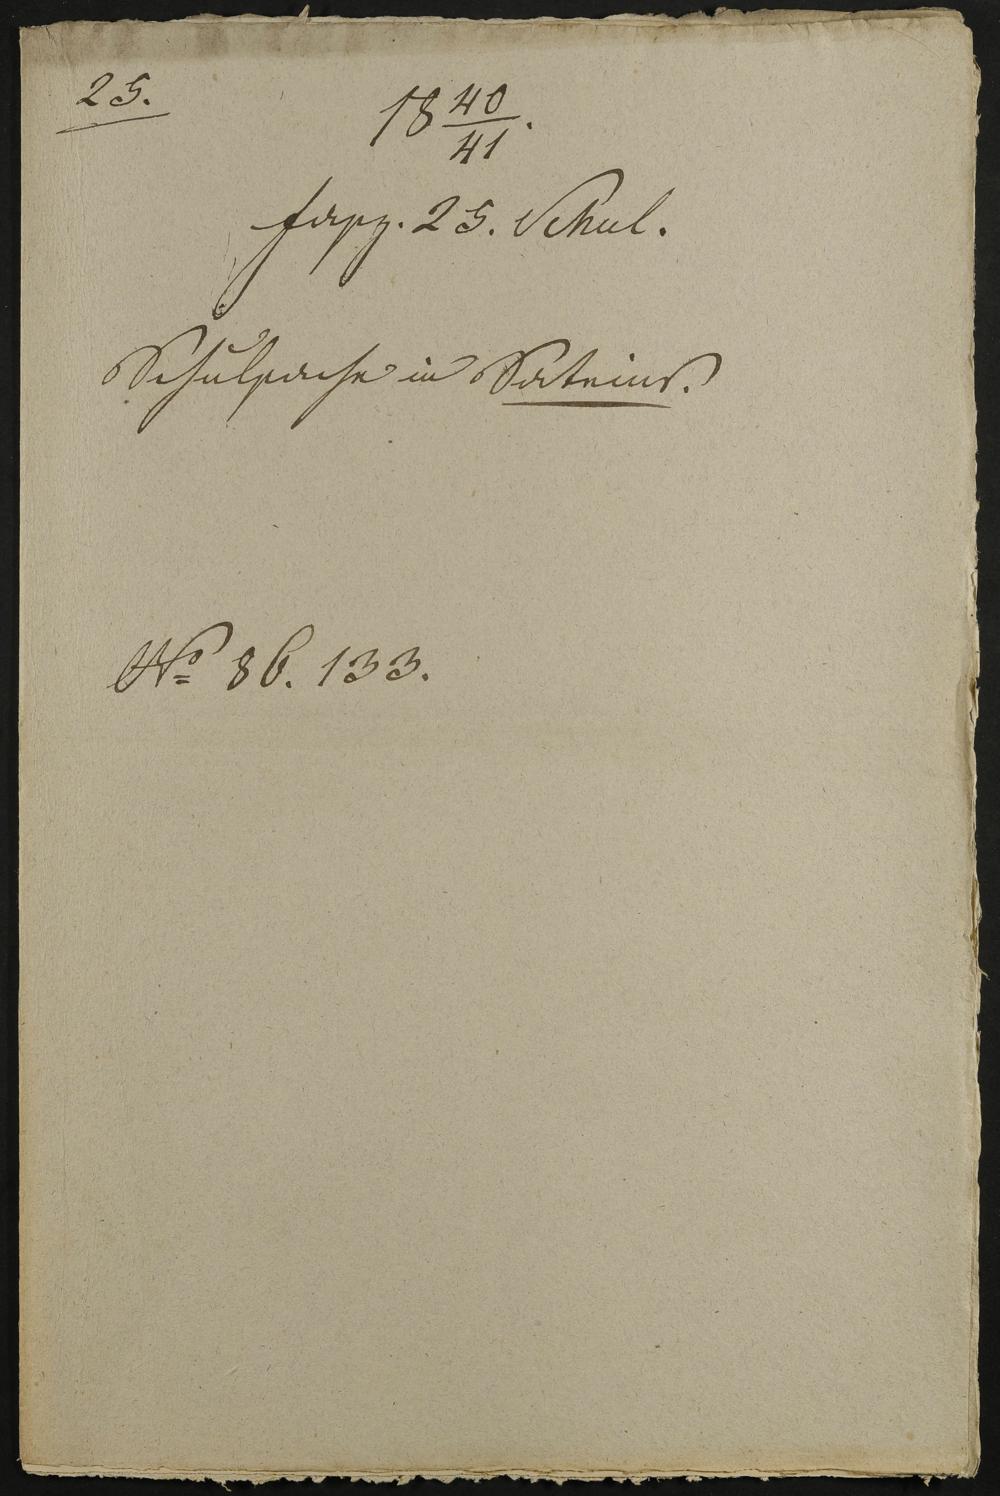 25.
18 40/41.
fasz. 25. Schul.
Schulsache in Sateins.
No 86. 133.